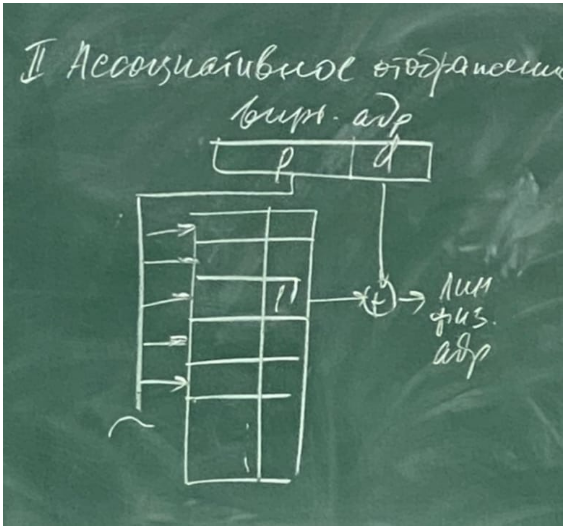 II Ассоциативное отображени
вирт. адр
p d
p'
+
лин
физ.
адр